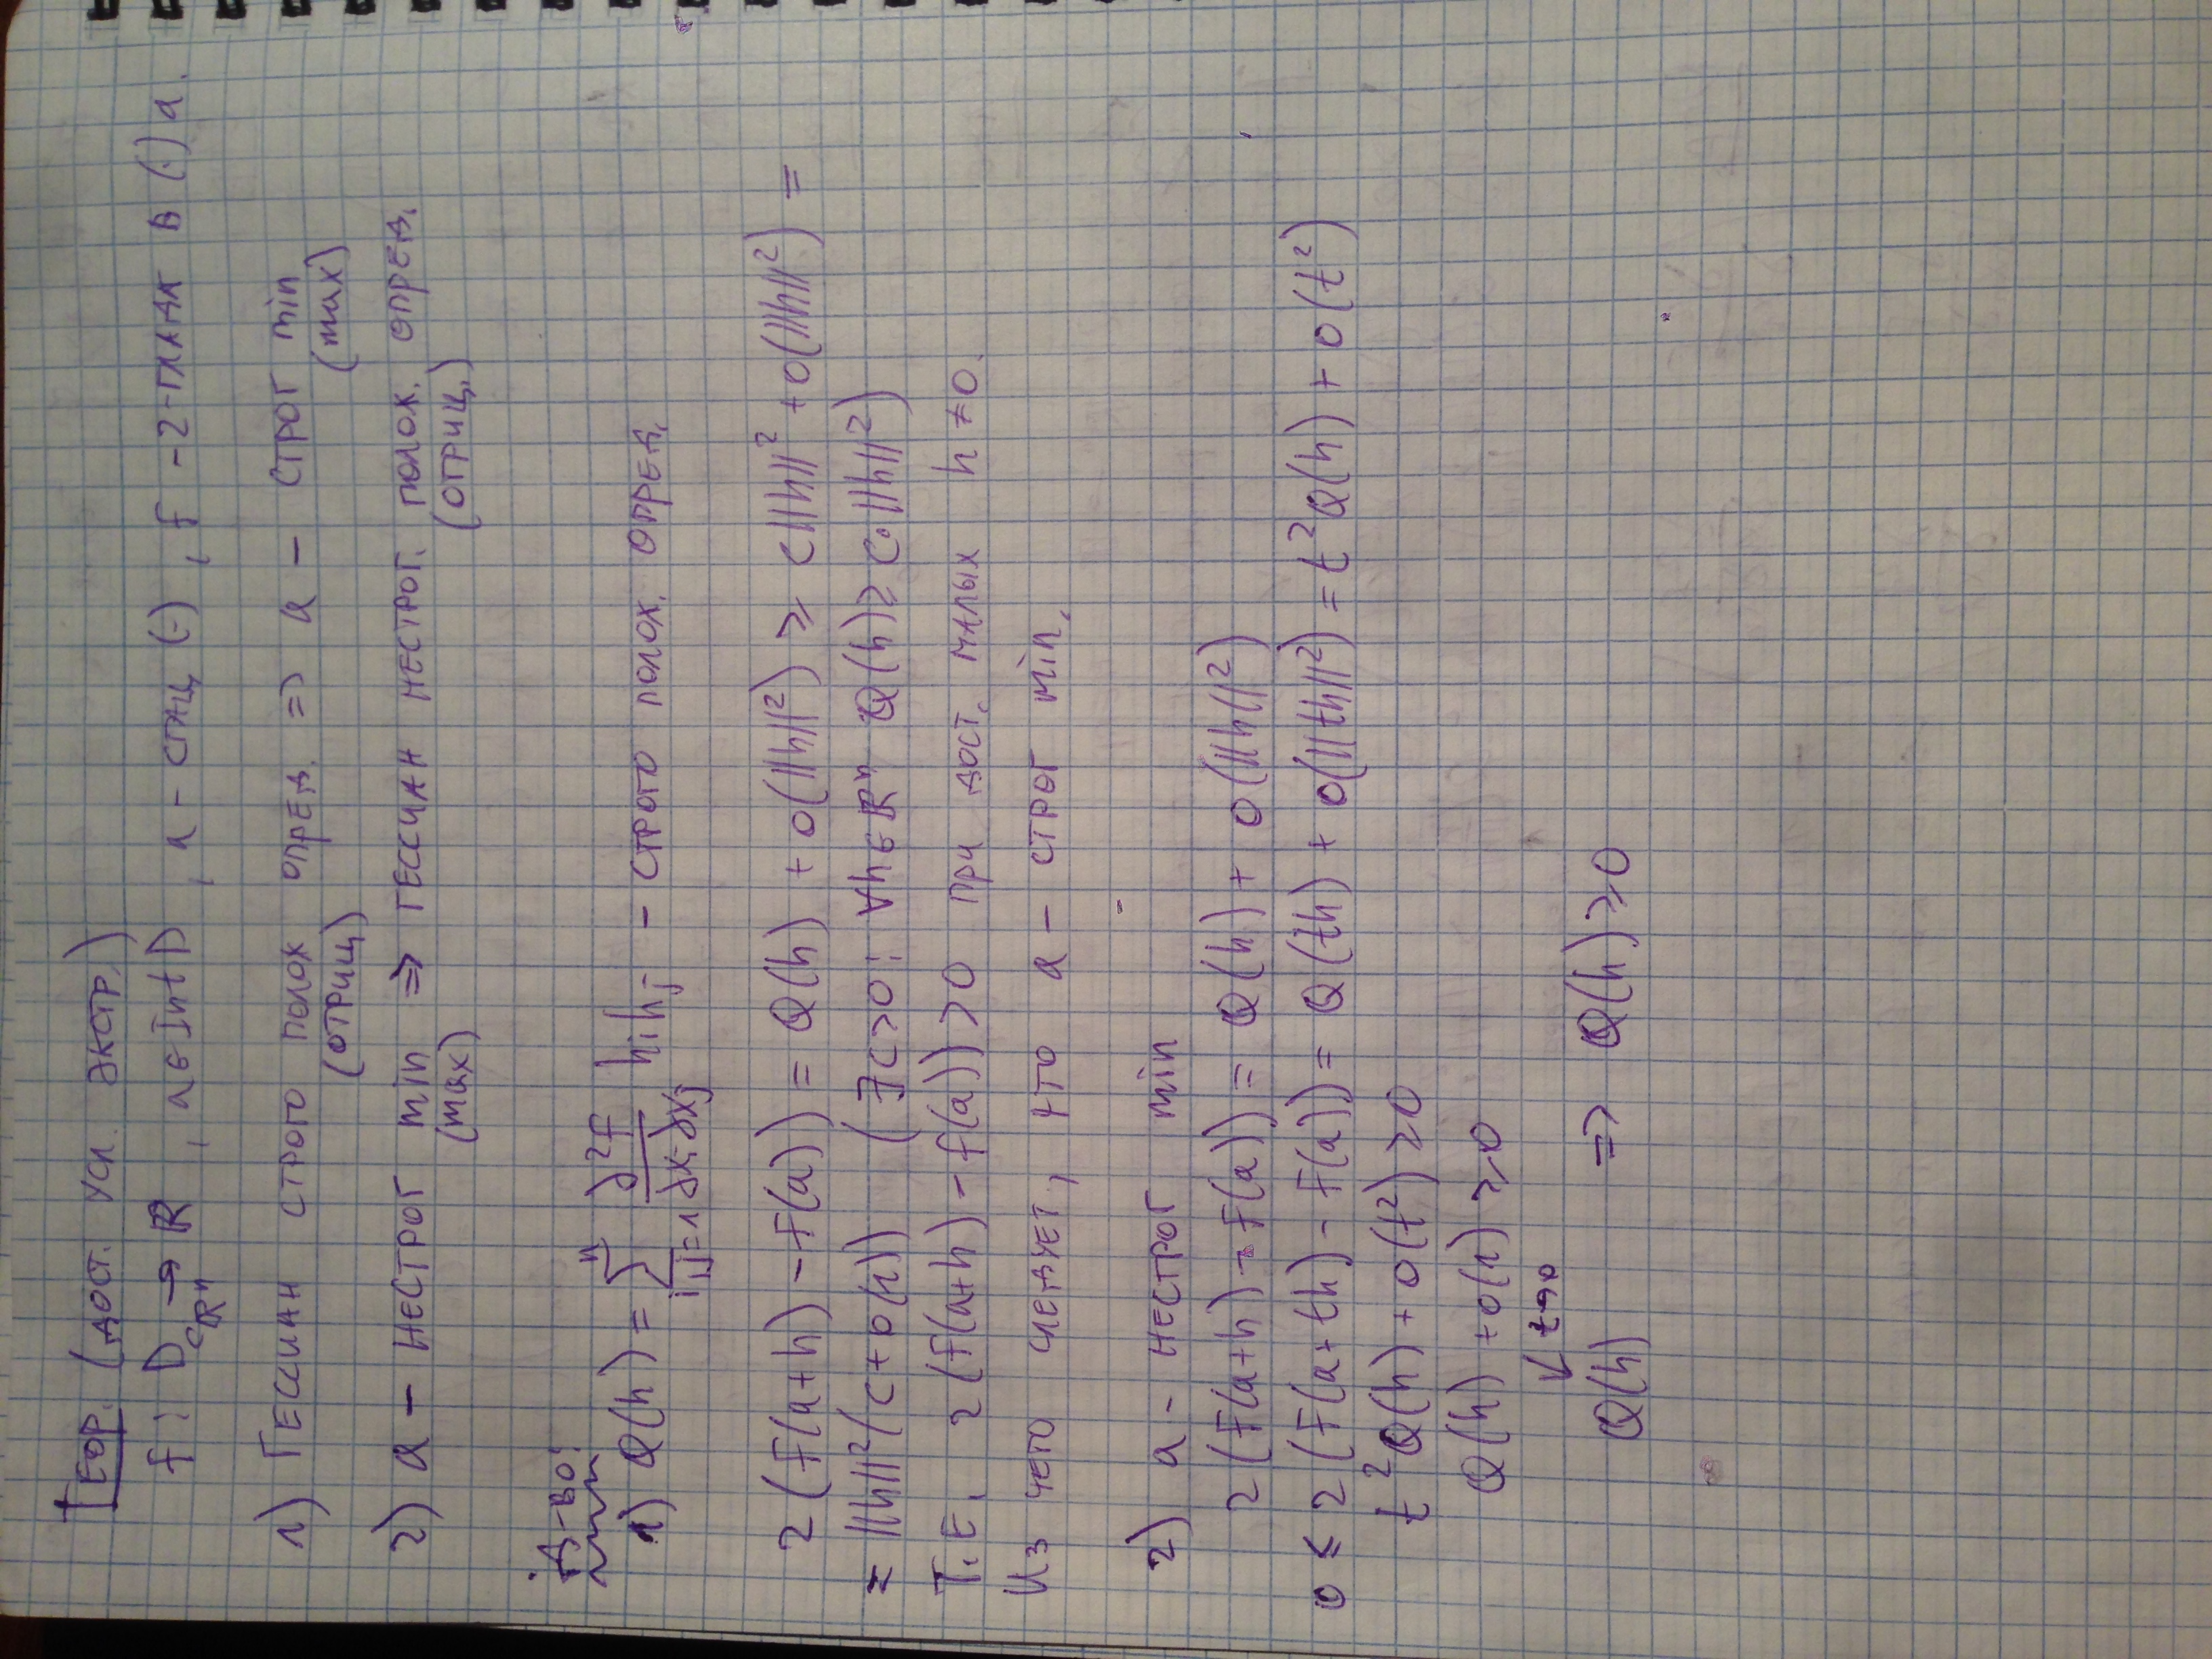 Теор. (дост. усл. экстр.)
f : D ⊂ ℝⁿ → ℝ , a ∈ Int D , a – стац (·) , f – 2-гладк в (·) a.
1) Гессиан строго полож опред. => a – строг min
(отриц) (max)
2) a – нестрог min => гессиан нестрог. полож. опред.
(max) (отриц.)
Д-во:
1) Q(h) = ∑_{i,j=1}^{n} ∂²f/∂xᵢ∂xⱼ hᵢhⱼ – строго полож. опред.
2(f(a+h) – f(a)) = Q(h) + o(||h||²) ≥ c||h||² + o(||h||²) =
= ||h||²(c + o(1)) (∃c>0: ∀h∈ℝⁿ Q(h) ≥ c·||h||²)
Т.е. 2(f(a+h) – f(a)) > 0 при дост. малых h ≠ 0.
Из чего следует, что a – строг min.
2) a – нестрог min
2(f(a+h) – f(a)) = Q(h) + o(||h||²)
0 ≤ 2(f(a+th) – f(a)) = Q(th) + o(||th||²) = t²Q(h) + o(t²)
t²Q(h) + o(t²) ≥ 0
Q(h) + o(1) ≥ 0
↓ t→0
Q(h) => Q(h) ≥ 0